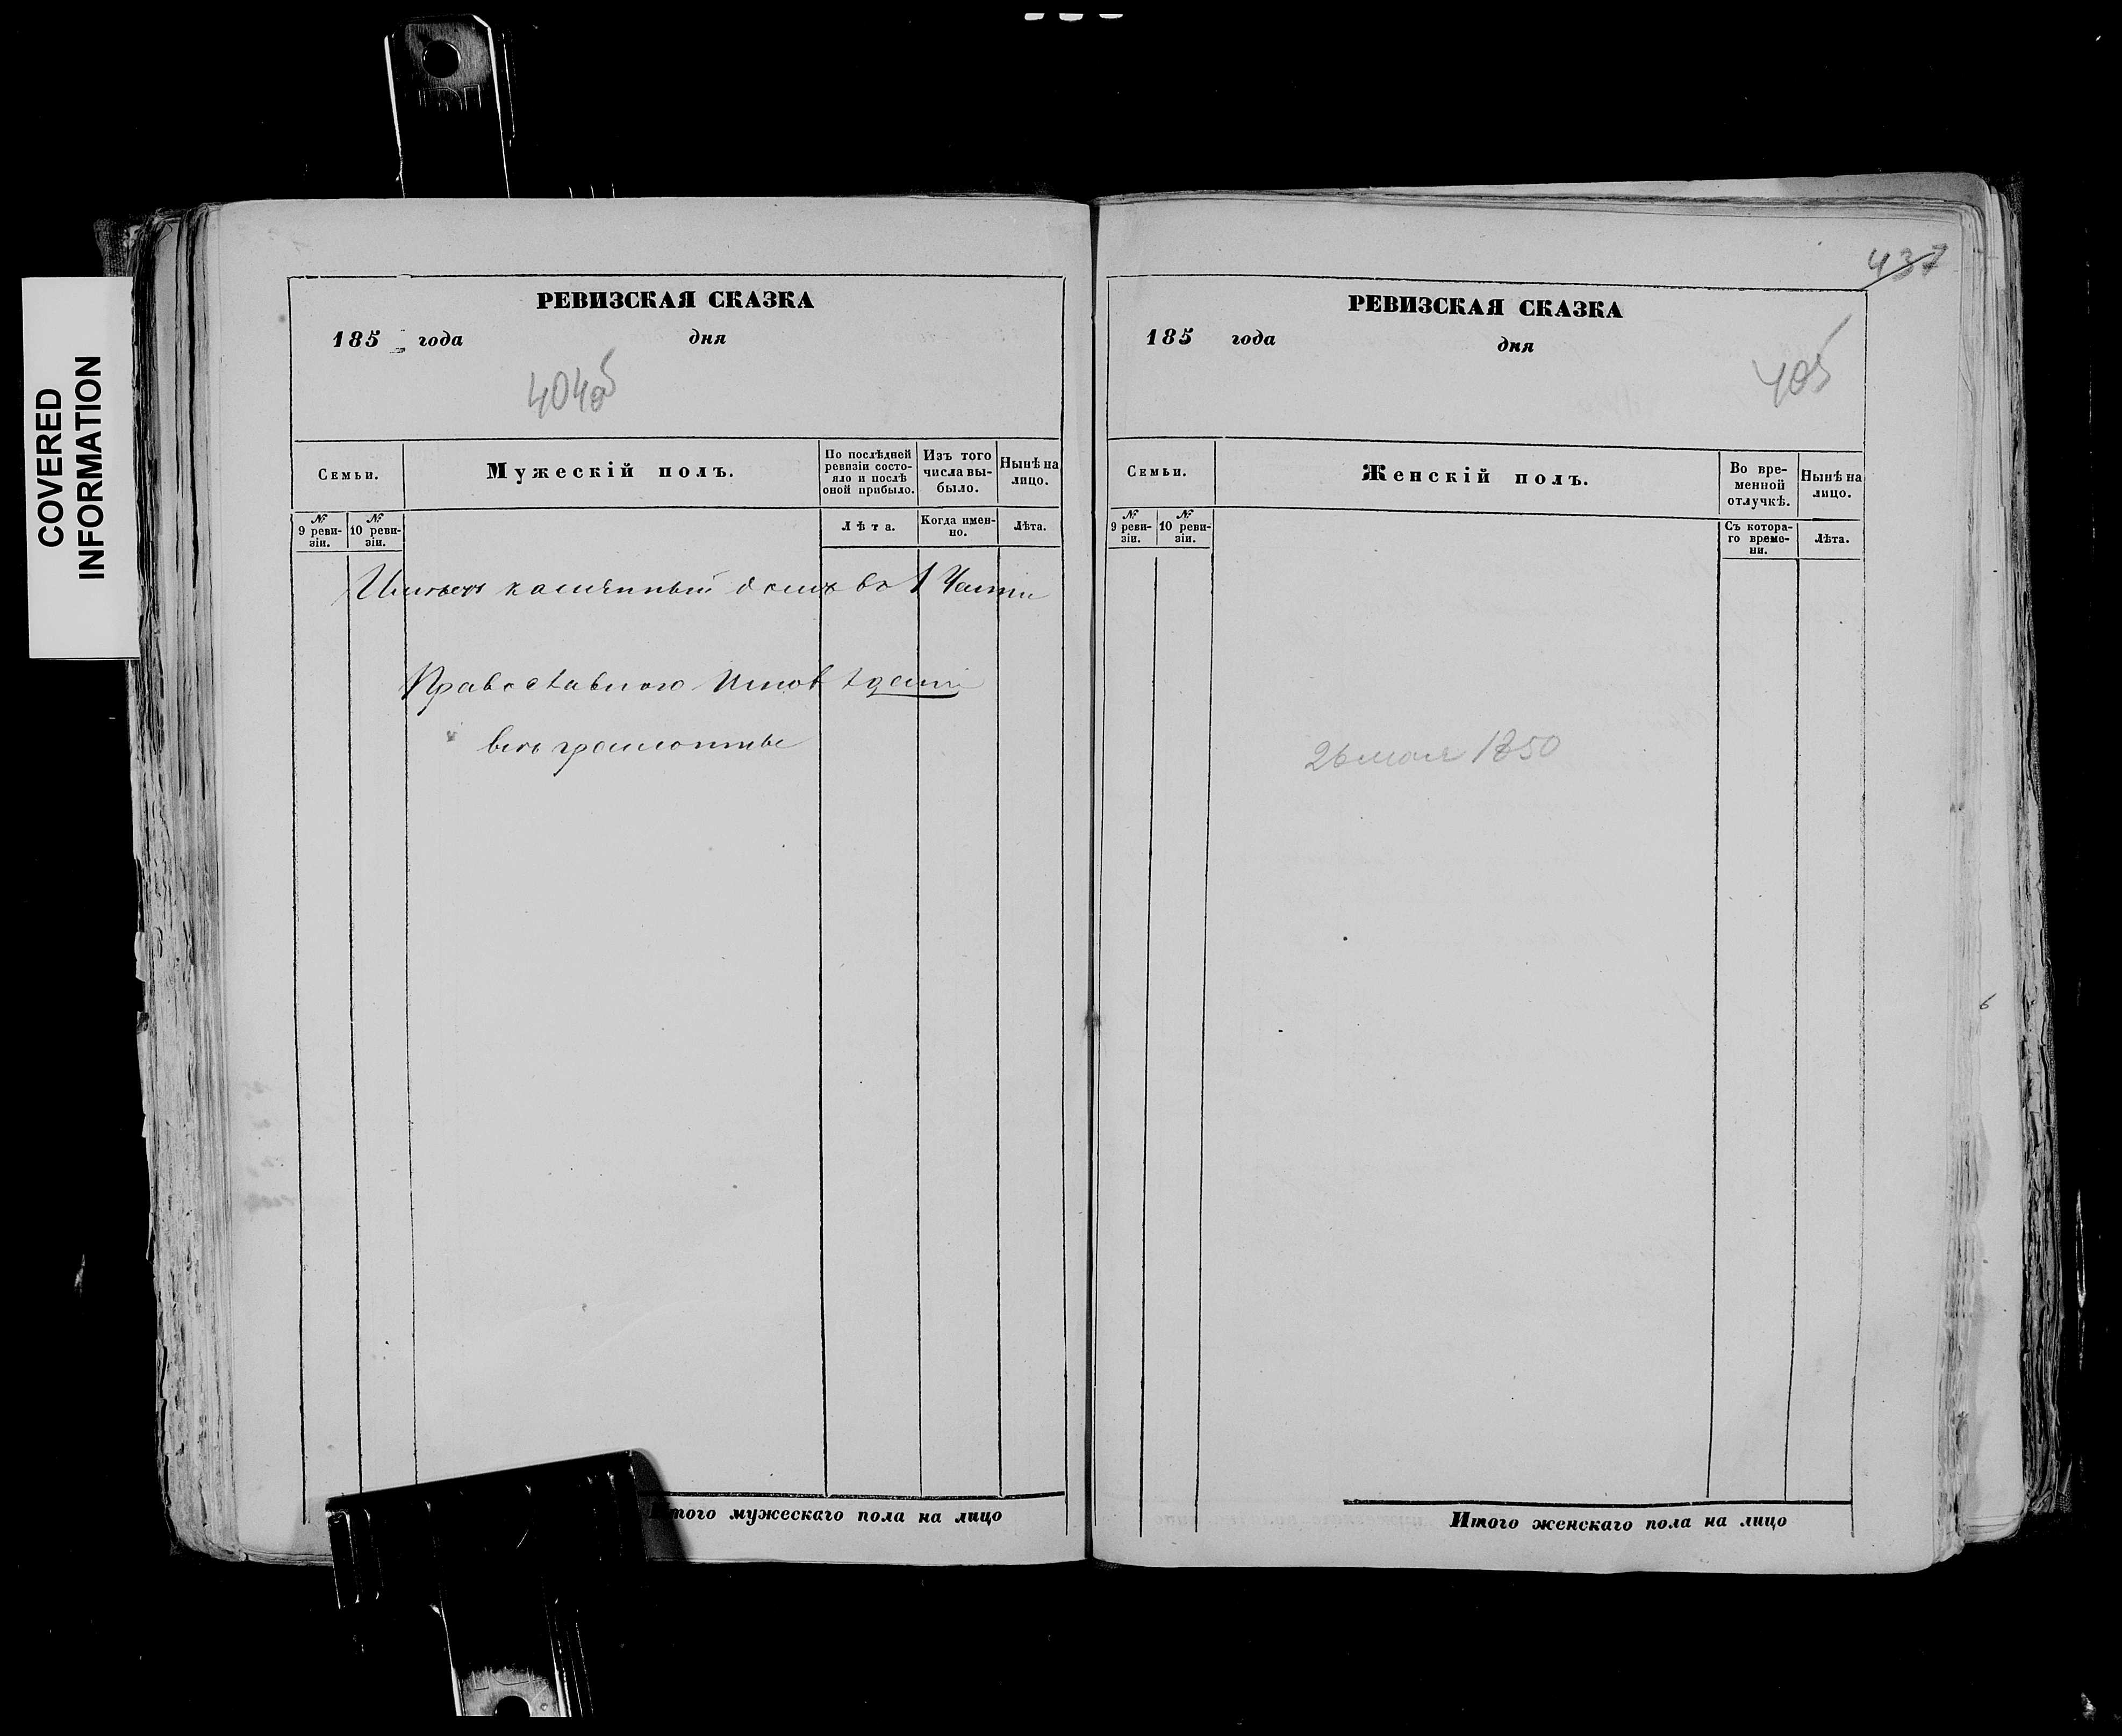 COVERED
INFORMATION
РЕВИЗСКАЯ СКАЗКА
185 года дня
404об
Семьи.
Мужескій полъ.
По послѣдней
ревизіи состо-
яло и послѣ
оной прибыло.
Изъ того
числа вы-
было.
Нынѣ на
лицо.
№
9 реви-
зіи.
№
10 реви-
зіи.
Лѣта.
Когда имен-
но.
Лѣта.
Имѣетъ каменный домъ во 1 Части
Православного Исповѣдані
вси грамотные
Итого мужескаго пола на лицо
437
РЕВИЗСКАЯ СКАЗКА
185 года дня
405
Семьи.
Женскій полъ.
Во вре-
менной
отлучкѣ.
Нынѣ на
лицо.
№
9 реви-
зіи.
№
10 реви-
зіи.
Съ котора-
го време-
ни.
Лѣта.
26 мая 1850
Итого женскаго пола на лицо